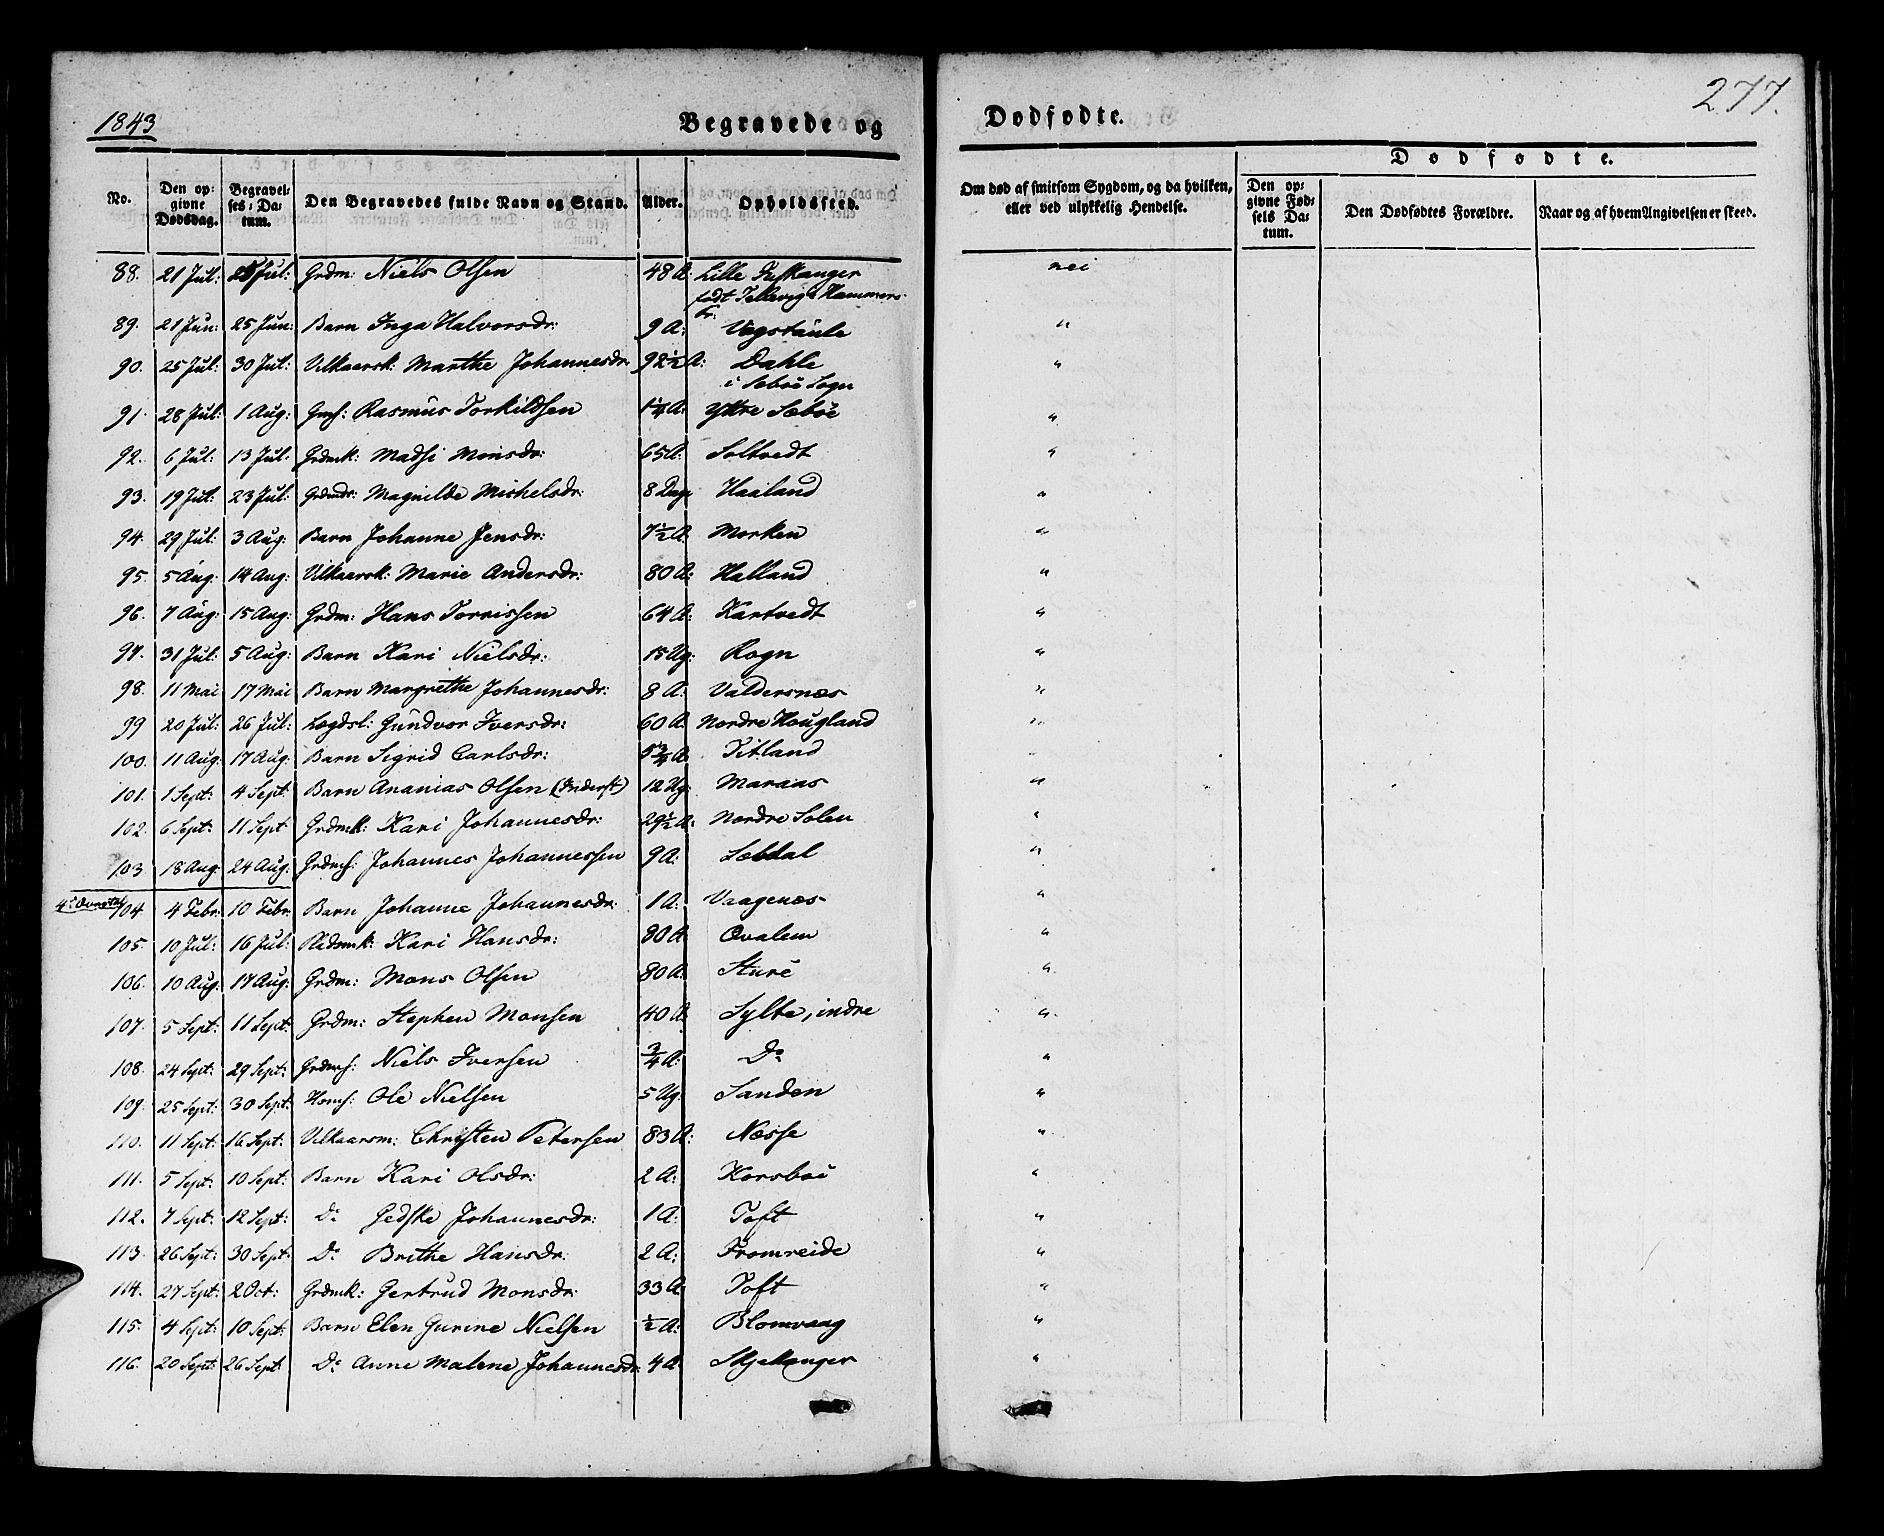 1843 Begravede og Dødfødte. 277.
Dødfødte.
No. Den opgivne Dødsdag. Begravelses-Datum. Den Begravedes fulde Navn og Stand. Alder. Opholdssted. Om død af smitsom Sygdom, og da hvilken, eller ved ulykkelig Hendelse. Den opgivne Fødsels Datum. Den Dødfødtes Forældre. Naar og af hvem Angivelsen er skeed.
88. 21 Jul: Jul: Grdm: Niels Olsen 48 A: Lille nei
født i Hammers
89. 21 Jun: 25 Jun: Barn Inga Halvorsdr: 9 A: Vagstaule "
90. 25 Jul: 30 Jul: Vilkaarsk: Marthe Johannesdr: 92½ A: Dahle "
i Sæbøe Sogn
91. 28 Jul: 1 Aug: Gms: Rasmus Torkildsen 1¼ A: Yttre Sæbøe "
92. 6 Jul: 13 Jul: Grdmk: Madsi Monsdr: 65 A: Soltvedt "
93. 19 Jul: 23 Jul: Grdmdr: Magnilde Michelsdr: 8 Dag: Haaland "
94. 29 Jul: 3 Aug: Barn Johanne Jensdr: 7½ A: Morken "
95. 5 Aug: 14 Aug: Vilkaarsk: Marie Andersdr: 80 A: Halland "
96. 7 Aug: 15 Aug: Grdm: Hans Torrissen 64 A: Kartvedt "
97. 31 Jul: 5 Aug: Barn Kari Nielsdr: 15 Ug: Rogn "
98. 11 Mai 17 Mai Barn Margrethe Johannesdr: 8 A: Valdersnæs "
99 20 Jul: 26 Jul: Lægdsl: Gundvor Iversdr: 60 A: Nordre Hougland "
100. 11 Aug: 17 Aug: Barn Sigrid Carlsdr: 5¾ A: Titland "
101. 1 Sept: 4 Sept: Barn Ananias Olsen (Inderst) 12 Ug: Maraas "
102. 6 Sept: 11 Sept Grdmk: Kari Johannesdr: 29½ A: Nordre Solen "
103 18 Aug: 24 Aug: Grdms: Johannes Johannessen 9 A: Sæbdal "
104. 4 Febr: 10 Febr: Barn Johanne Johannesdr: 1 A: Vaagenæs "
105. 10 Jul: 16 Jul: Pldsmk: Kari Hansdr: 80 A: Ovalem "
106. 10 Aug: 17 Aug: Grdm: Mons Olsen 80 A: Sture "
107. 5 Sept: 11 Sept: Grdm: Stephen Monsen 40 A: Sylte, indre "
108. 24 Sept: 29 Sept: Grdms: Niels Iversen ¾ A: Do "
109. 25 Sept: 30 Sept: Hsms: Ole Nielsen 5 Ug: Sanden "
110. 11 Sept: 16 Sept: Vilkaarsm: Christen Petersen 83 A: Næsse "
111. 5 Sept: 10 Sept: Barn Kari Olsdr: 2 A: Korsbøe "
112. 7 Sept: 12 Sept: Do Gedske Johannesdr: 1 A: Toft "
113. 26 Sept: 30 Sept: Do Brithe Hansdr: 2 A: Fromreide "
114. 27 Sept: 2 Oct: Grdmk: Gertrud Monsdr: 33 A: Toft "
115. 4 Sept: 10 Sept: Barn Elen Gurine Nielsen ½ A: Blomvaag "
116. 20 Sept: 26 Sept: Do Anne Malene Johannesdr: 4 A: Skjellanger "